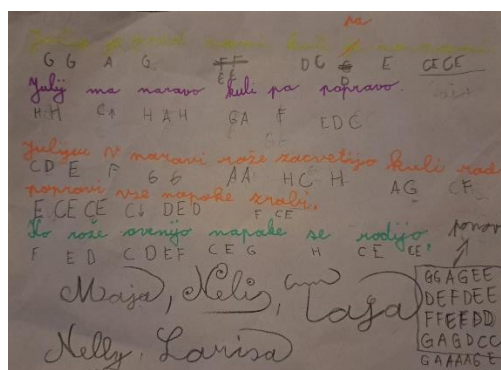 pa
G G A G F F D C G E CECE
E E D
Julij ma naravo kuli pa popravo.
H H C H A H G A F E D C
Julijcu v naravi rože zacvetijo kuli rad
C D E F G G A A H C H A G C F
popravi vse napake zrobi.
E CE CE C D E D F CE
Ko rože ovenijo napake se rodijo,
F E D C D E F C E G H C E CE
ponov
Maja, Nelis, Taja
GGAGEE
DEFDEE
FFEEDD
GAGDCC
Nelly, Larisa
GAAAAGE